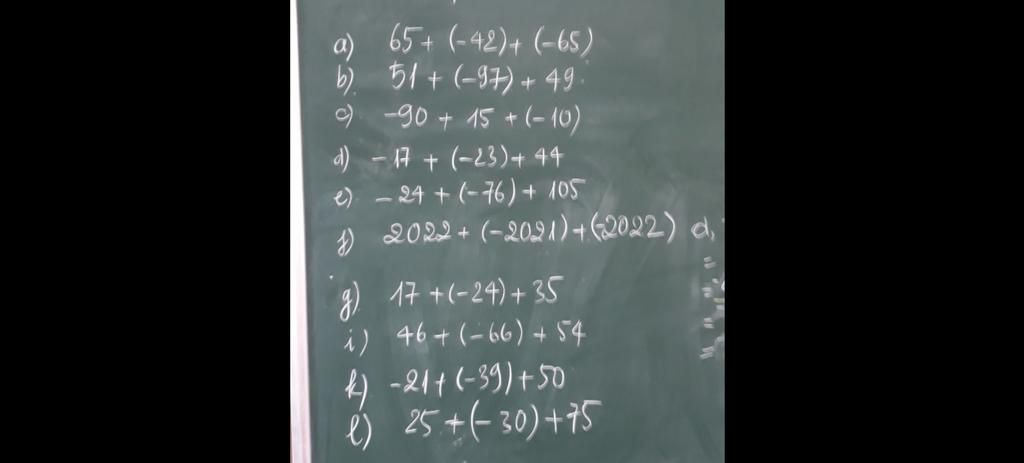 a) 65 + (-42) + (-65)
b) 51 + (-97) + 49
c) -90 + 15 + (-10)
d) -17 + (-23) + 44
e) -24 + (-76) + 105
f) 2022 + (-2021) + (-2022) d,
g) 17 + (-24) + 35
i) 46 + (-66) + 54
k) -21 + (-39) + 50
l) 25 + (-30) + 75